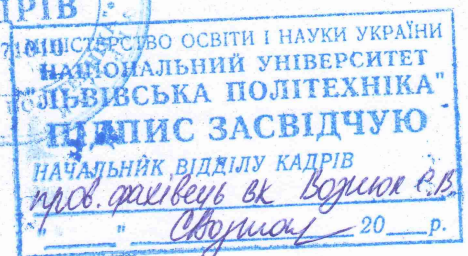 ДРІВ
МІНІСТЕРСТВО ОСВІТИ І НАУКИ УКРАЇНИ
НАЦІОНАЛЬНИЙ УНІВЕРСИТЕТ
"ЛЬВІВСЬКА ПОЛІТЕХНІКА"
ПІДПИС ЗАСВІДЧУЮ
НАЧАЛЬНИК ВІДДІЛУ КАДРІВ
пров. фахівець ВК
" " 20 р.